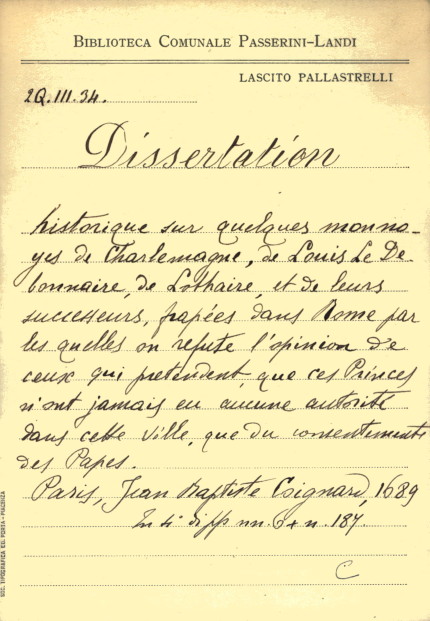 BIBLIOTECA COMUNALE PASSERINI-LANDI
LASCITO PALLASTRELLI
2Q.III.34.
Dissertation
historique sur quelques monno-
yes de Charlemagne, de Louis Le De-
bonnaire, de Lothaire, et de leurs
successeurs, frapées dans Rome par
les quelles on refute l'opinion de
ceux qui pretendent, que ces Princes
n'ont jamais eu aucune autorité
dans cette Ville, que du consentement
des Papes.
Paris, Jean Baptiste Coignard, 1689
In 4° nn. n. 187.
C
SOC. TIPOGRAFICA ED. PORTA - PIACENZA